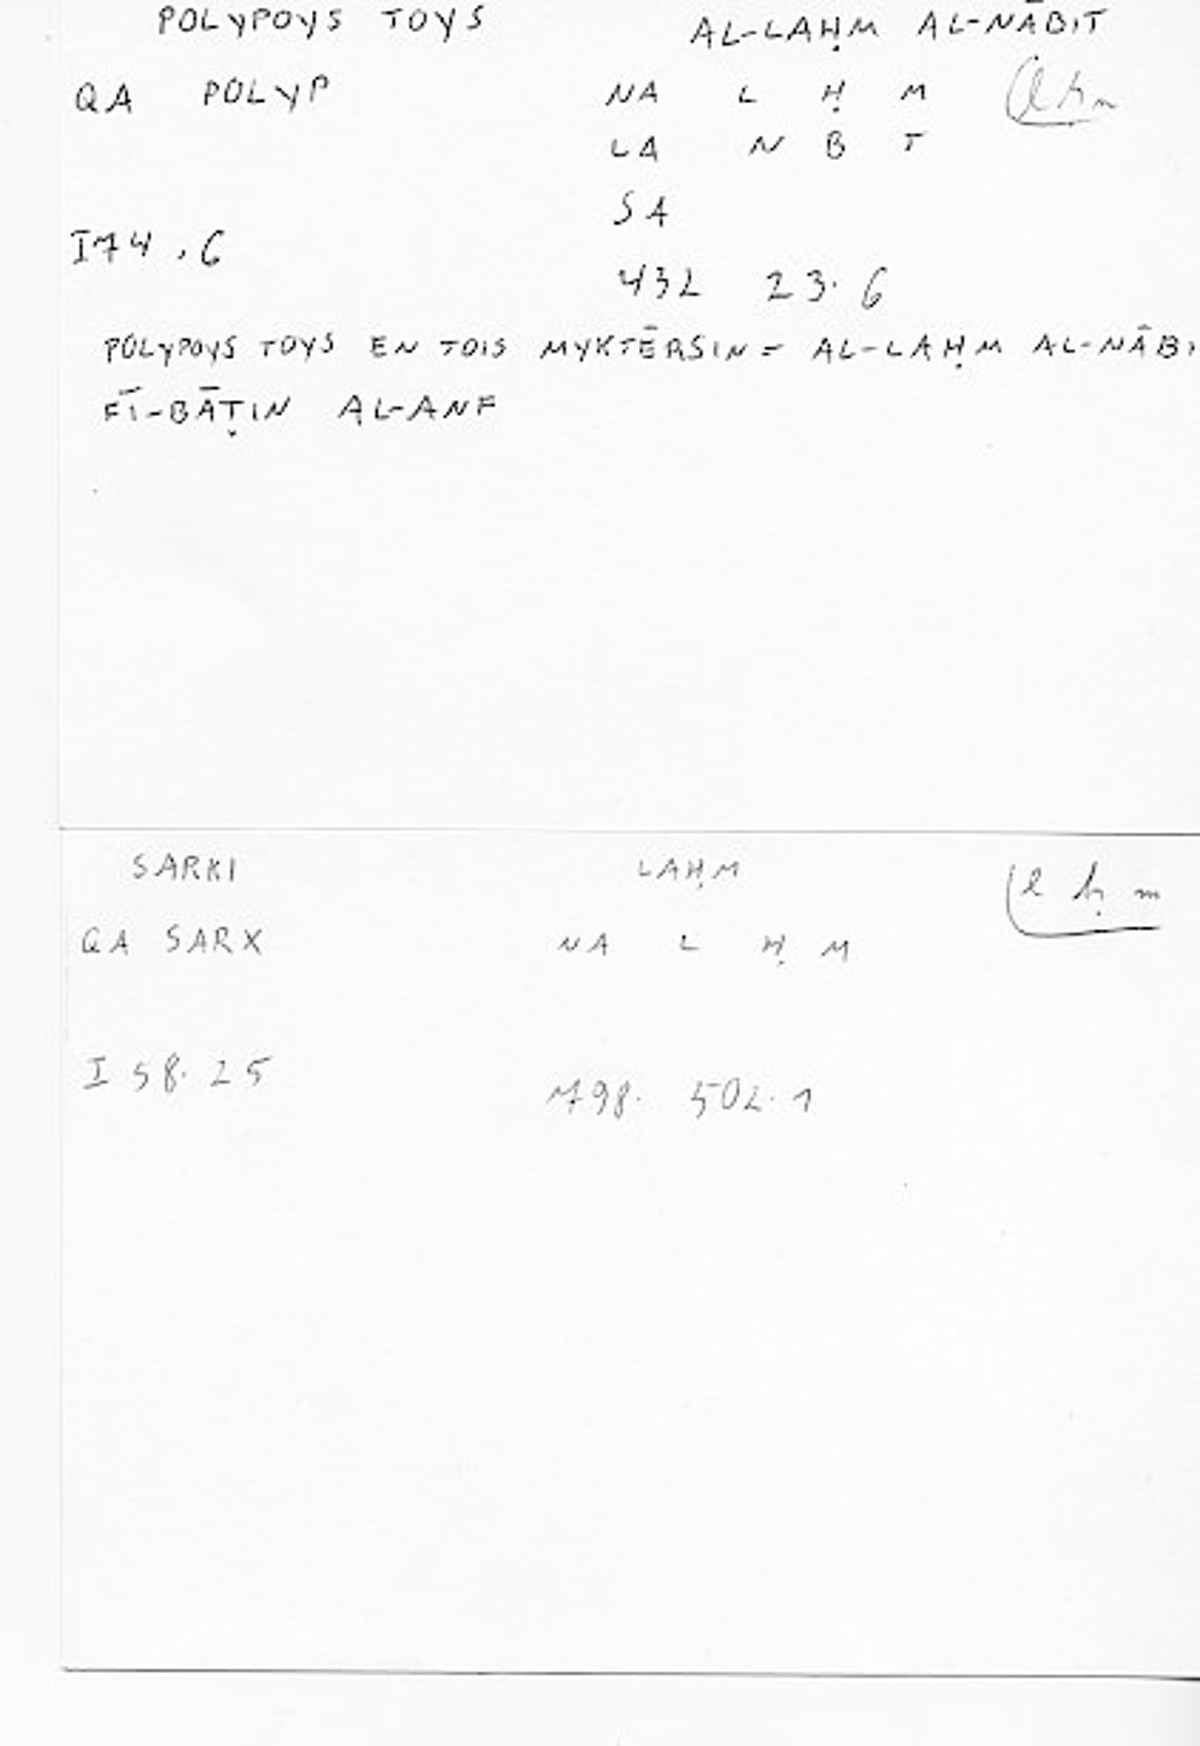 POLYPOYS TOYS AL-LAḤM AL-NĀBIT
QA POLYP NA L Ḥ M lḥm
LA N B T
SA
I74.6
432 23.6
POLYPOYS TOYS EN TOIS MYKTĒRSIN = AL-LAḤM AL-NĀBI
FĪ-BĀṬIN AL-ANF
SARKI LAḤM l ḥ m
QA SARX NA L Ḥ M
I 58.25
798. 502.1